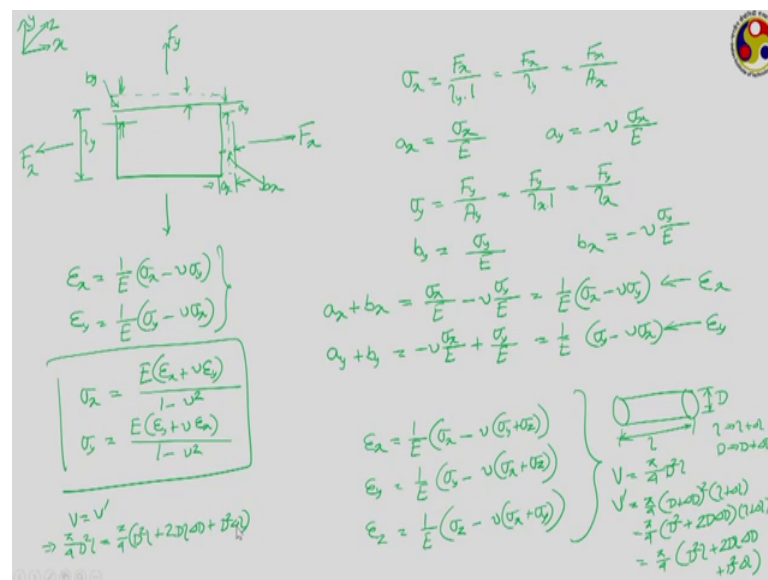 y
z
x
F_y
b_y
a_y
l_y
F_x
F_x
a_x
b_x
ε_x = 1/E (σ_x - νσ_y)
ε_y = 1/E (σ_y - νσ_x)
σ_x = E(ε_x + νε_y) / 1 - ν²
σ_y = E(ε_y + νε_x) / 1 - ν²
V = V'
⇒ π/4 D²l = π/4 (D²l + 2DlΔD + D²Δl)
σ_x = F_x / l_y.1 = F_x / l_y = F_x / A_x
a_x = σ_x / E a_y = -ν σ_x / E
σ_y = F_y / A_y = F_y / l_x.1 = F_y / l_x
b_y = σ_y / E b_x = -ν σ_y / E
a_x + b_x = σ_x / E - ν σ_y / E = 1/E (σ_x - νσ_y) ← ε_x
a_y + b_y = -ν σ_x / E + σ_y / E = 1/E (σ_y - νσ_x) ← ε_y
ε_x = 1/E (σ_x - ν(σ_y + σ_z))
ε_y = 1/E (σ_y - ν(σ_x + σ_z))
ε_z = 1/E (σ_z - ν(σ_x + σ_y))
D
l
l ⇒ l + Δl
D ⇒ D + ΔD
V = π/4 D²l
V' = π/4 (D + ΔD)² (l + Δl)
= π/4 (D² + 2DΔD) (l + Δl)
= π/4 (D²l + 2DlΔD
+ D²Δl)